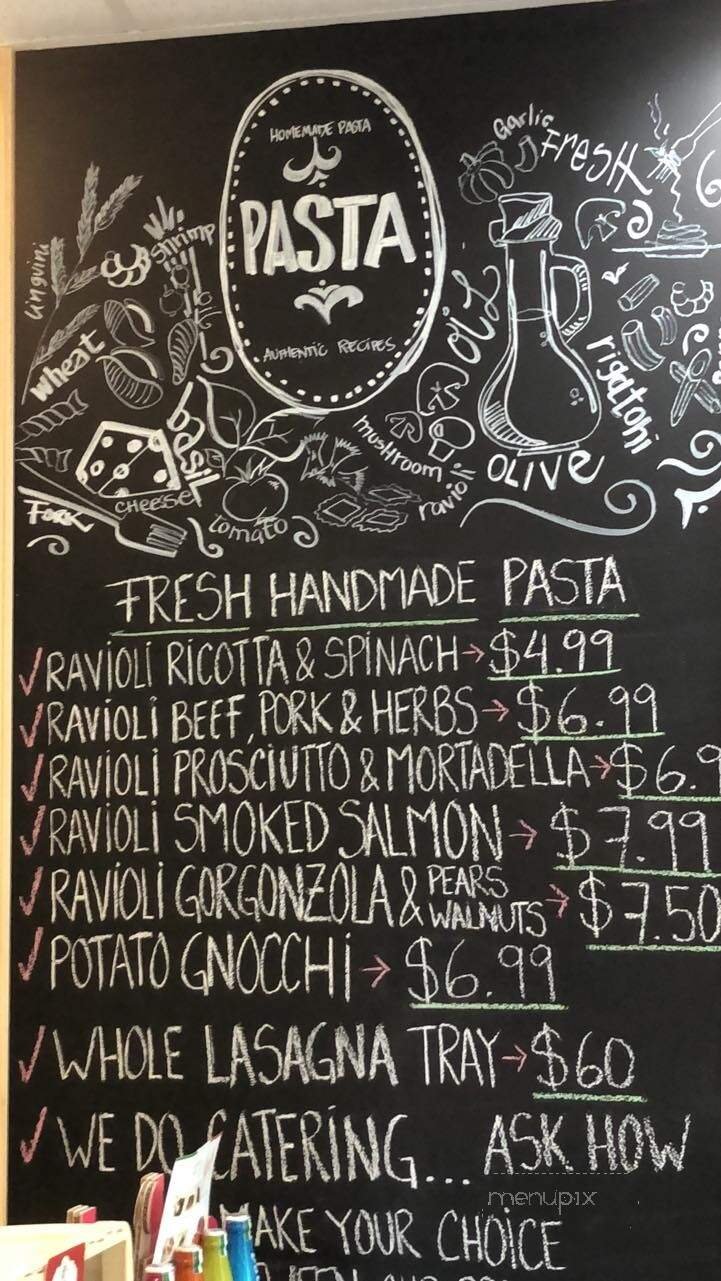 HOMEMADE PASTA
PASTA
AUTHENTIC RECIPES
Garlic
FResH
linguini
shrimp
wheat
OiL
rigatoni
basil
mushroom
ravioli
OLIVe
CHEESE
FORK
tomato
FRESH HANDMADE PASTA
RAViOLi RiCOTTA & SPiNACH → $4.99
RAViOLi BEEF, PORK & HERBS → $6.99
RAViOLi PROSCiUTTO & MORTADELLA → $6.9
RAViOLi SMOKED SALMON → $7.99
RAViOLi GORGONZOLA & PEARS WALNUTS → $7.50
POTATO GNOCCHi → $6.99
WHOLE LASAGNA TRAY → $60
WE DO CATERING... ASK HOW
menupix
MAKE YOUR CHOiCE